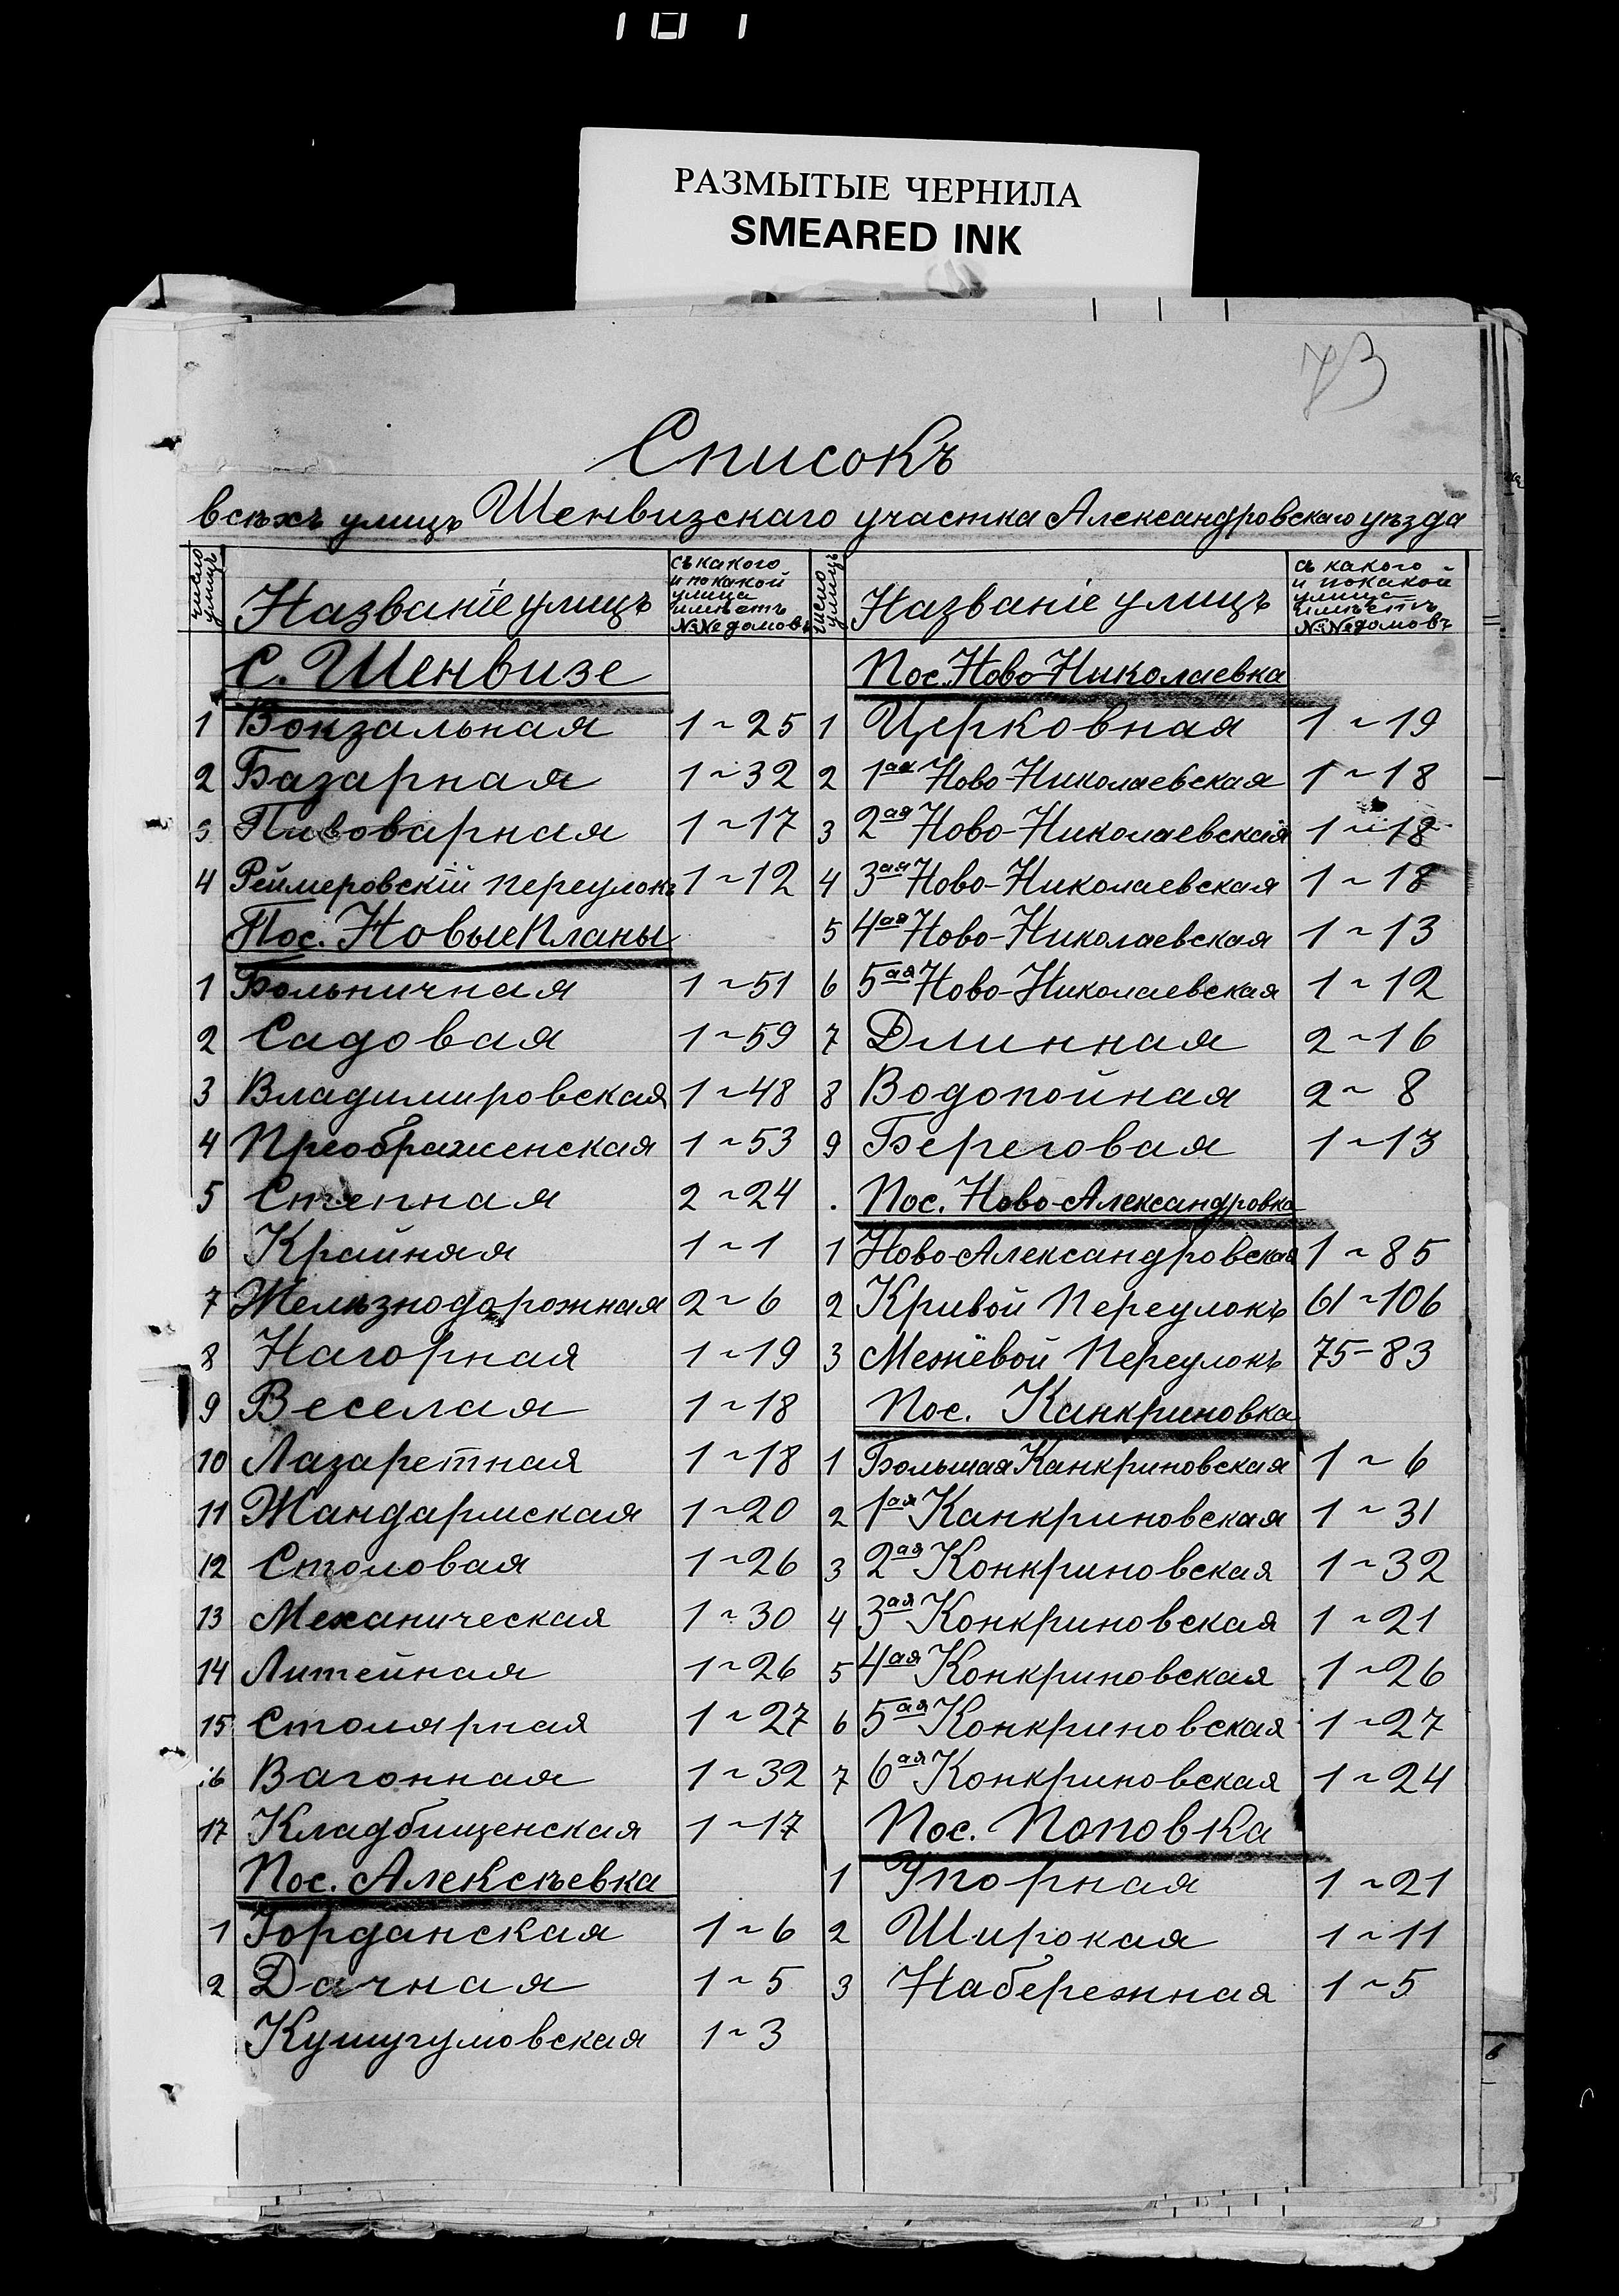 РАЗМЫТЫЕ ЧЕРНИЛА
SMEARED INK
73
Списокъ
всѣхъ улицъ Шенвизскаго участка Александровскаго уѣзда
число улицъ
Названіе улицъ
съ какого
и по какой
улица
имѣетъ
№№ домовъ
С. Шенвизе
1 Вокзальная 1 ~ 25
2 Базарная 1 ~ 32
3 Пивоварная 1 ~ 17
4 Реймеровскій переулокъ 1 ~ 12
Пос. Новые Планы
1 Больничная 1 ~ 51
2 Садовая 1 ~ 59
3 Владимировская 1 ~ 48
4 Преображенская 1 ~ 53
5 Степная 2 ~ 24
6 Крайняя 1 ~ 1
7 Желѣзнодорожная 2 ~ 6
8 Нагорная 1 ~ 19
9 Веселая 1 ~ 18
10 Лазаретная 1 ~ 18
11 Жандармская 1 ~ 20
12 Столовая 1 ~ 26
13 Механическая 1 ~ 30
14 Литейная 1 ~ 26
15 Столярная 1 ~ 27
16 Вагонная 1 ~ 32
17 Кладбищенская 1 ~ 17
Пос. Алексѣевка
1 Іорданская 1 ~ 6
2 Дачная 1 ~ 5
Кушугумовская 1 ~ 3
число улицъ
Названіе улицъ
съ какого
и по какой
улица
имѣетъ
№№ домовъ
Пос. Ново-Николаевка
1 Церковная 1 ~ 19
2 1ая Ново-Николаевская 1 ~ 18
3 2ая Ново-Николаевская 1 ~ 18
4 3ая Ново-Николаевская 1 ~ 18
5 4ая Ново-Николаевская 1 ~ 13
6 5ая Ново-Николаевская 1 ~ 12
7 Длинная 2 ~ 16
8 Водопойная 2 ~ 8
9 Береговая 1 ~ 13
Пос. Ново-Александровка
1 Ново-Александровская 1 ~ 85
2 Кривой Переулокъ 61 ~ 106
3 Межевой Переулокъ 75 - 83
Пос. Канкриновка
1 Большая Канкриновская 1 ~ 6
2 1ая Канкриновская 1 ~ 31
3 2ая Конкриновская 1 ~ 32
4 3ая Конкриновская 1 ~ 21
5 4ая Конкриновская 1 ~ 26
6 5ая Конкриновская 1 ~ 27
7 6ая Конкриновская 1 ~ 24
Пос. Поповка
1 Упорная 1 ~ 21
2 Широкая 1 ~ 11
3 Набережная 1 ~ 5